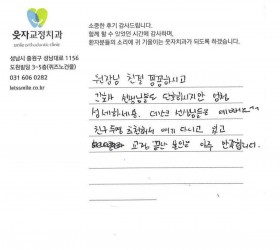 웃자교정치과
smile orthodontic clinic
성남시 중원구 성남대로 1156
도원빌딩 3~5층(퀴즈노건물)
031 606 0282
letssmile.co.kr
소중한 후기 감사드립니다.
함께 할 수 있었던 시간에 감사하며,
환자분들의 소리에 귀 기울이는 웃자치과가 되도록 하겠습니다.
원장님 친절 꼼꼼하시고
간호사 선생님들도 단호하시지만 엄청
섬세하세요. 데스크 선생님들은 예뻐요~
친구들도 추천해서 여기 다니고 있고
교정 끝난 모습도 아주 만족합니다.